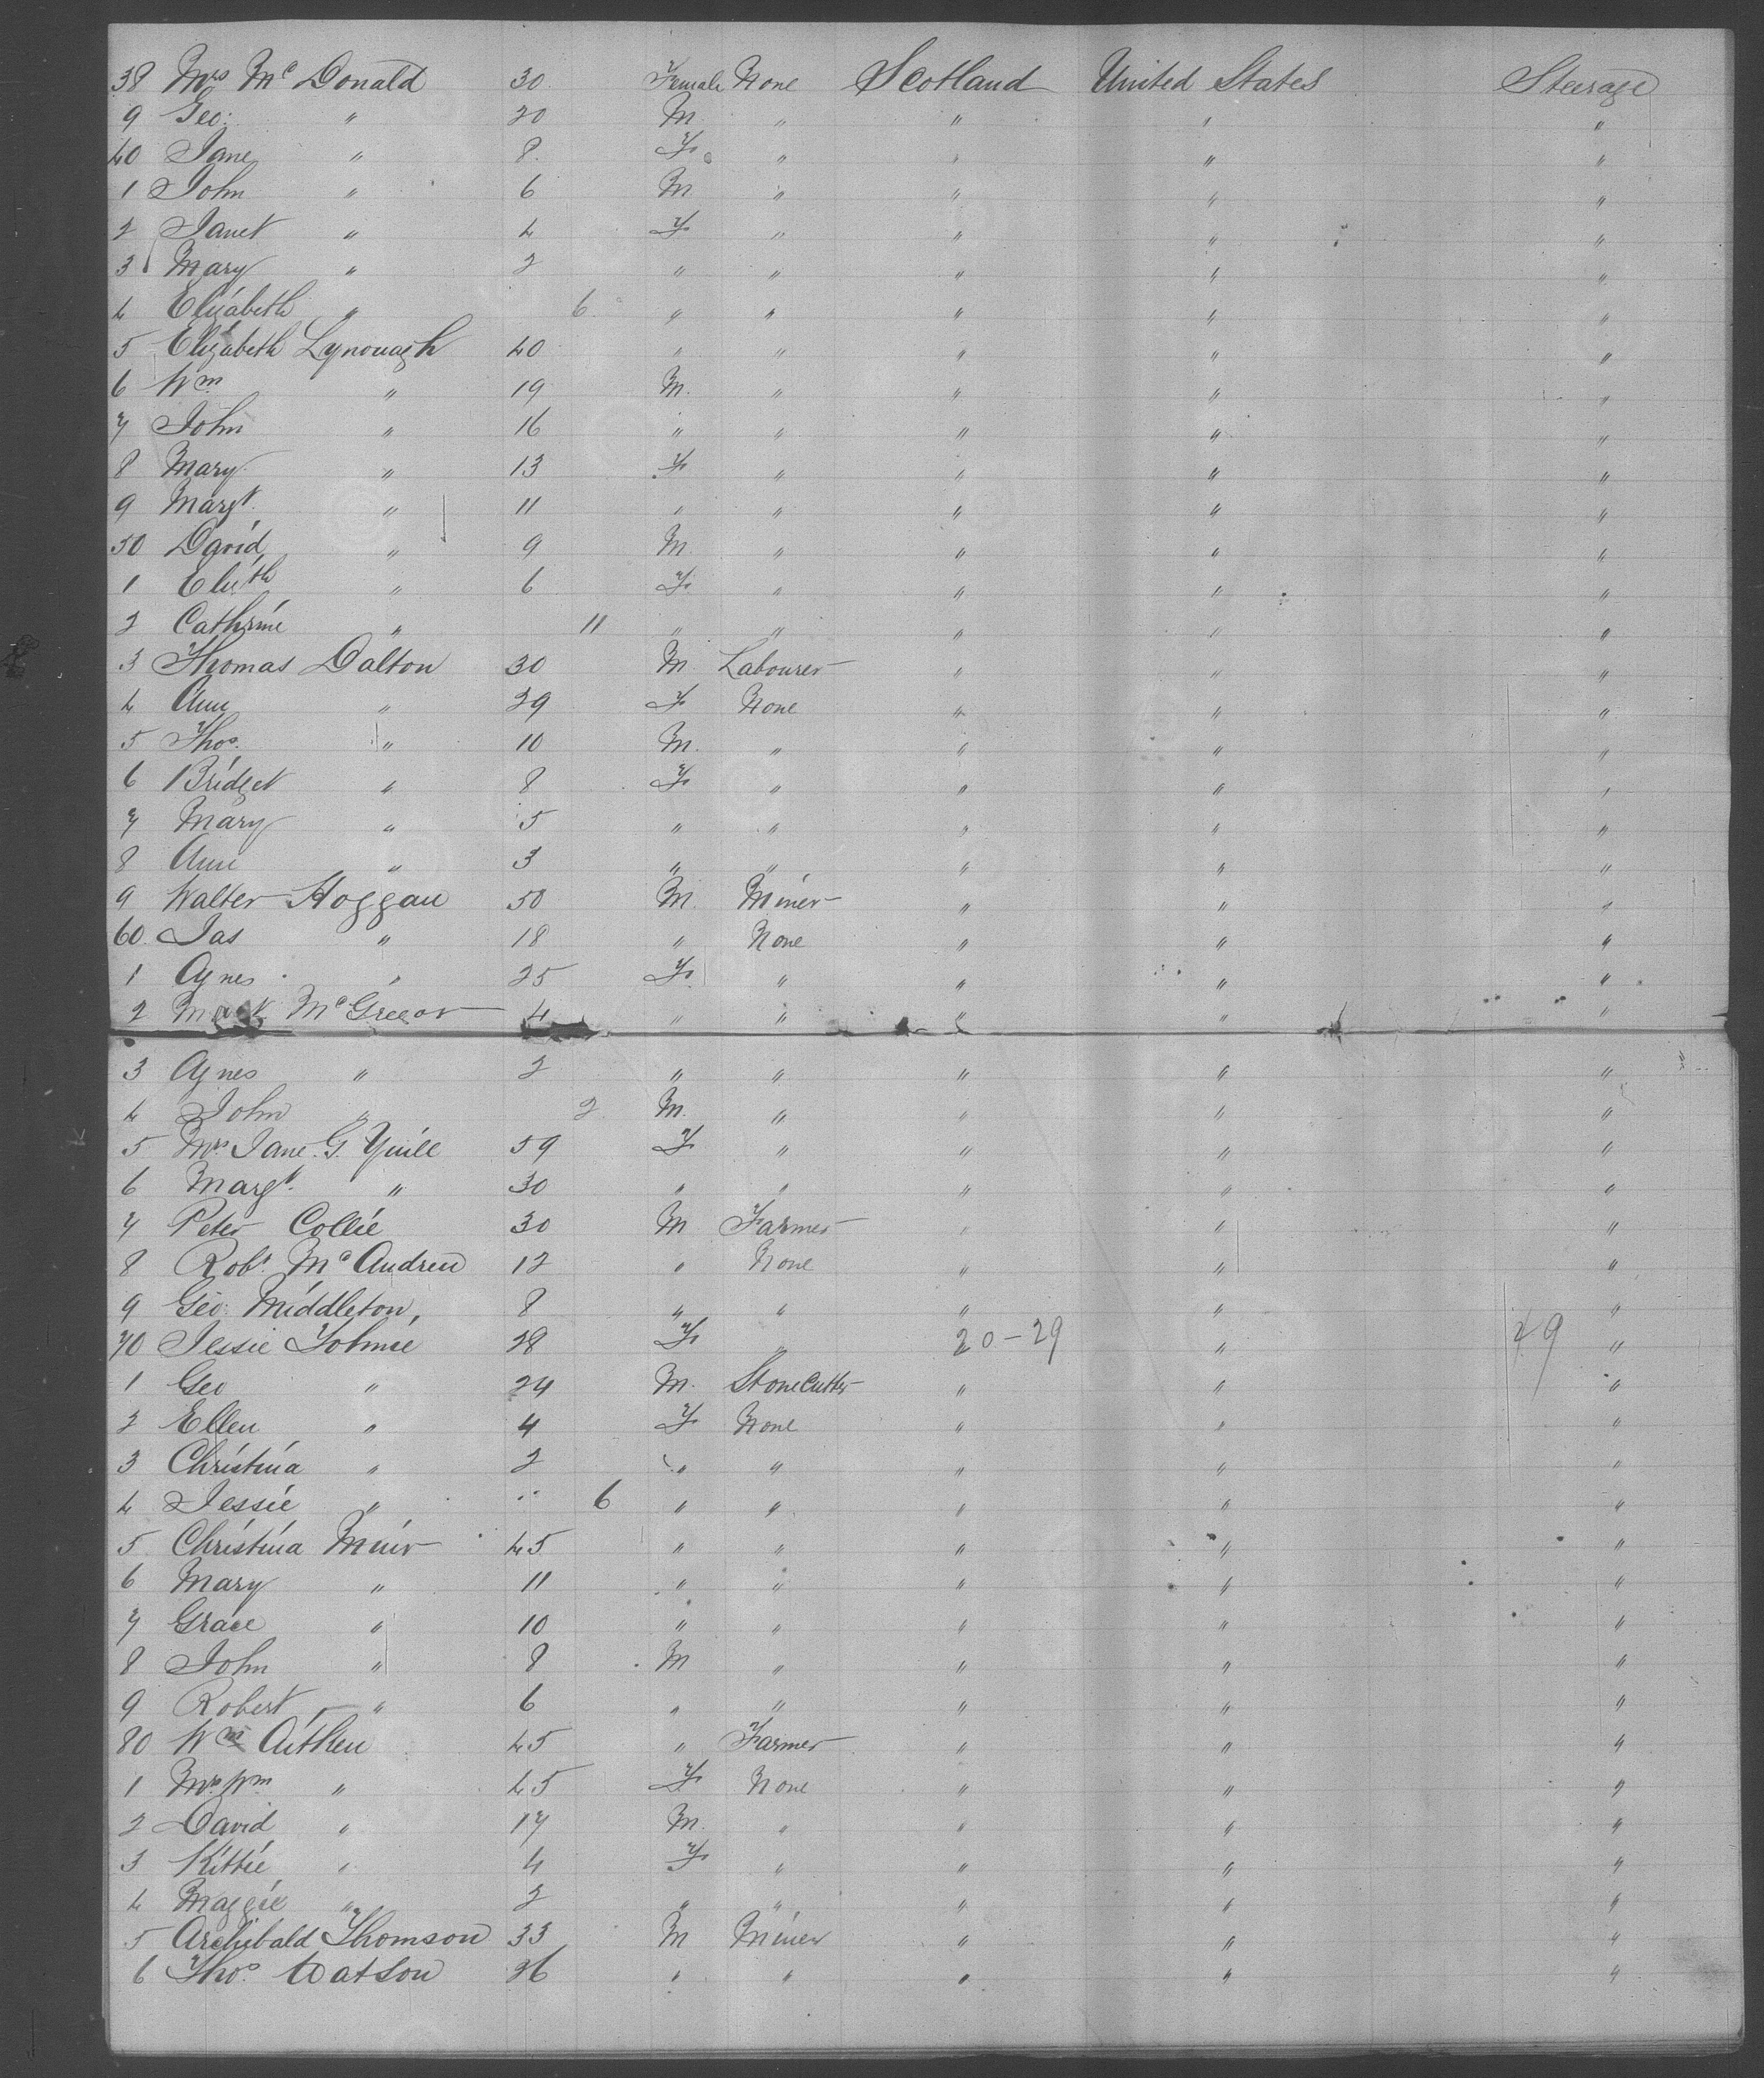 38 Mrs Mc Donald 30 Female None Scotland United States Steerage
9 Geo: " 20 M " " " "
40 Jane " 8 F " " " "
1 John " 6 M " " " "
2 Janet " 4 F " " " "
3 Mary " 2 " " " " "
4 Elizabeth " 6 " " " " "
5 Elizabeth Lynouagh 40 " " " " "
6 Wm " 19 M. " " " "
7 John " 16 " " " " "
8 Mary " 13 F " " " "
9 Margt. " 11 " " " " "
50 David " 9 M " " " "
1 Elizth " 6 F " " " "
2 Cathrine " 11 " " " " "
3 Thomas Dalton 30 M Labourer " " "
4 Ann " 29 F None " " "
5 Thos. " 10 M. " " " "
6 Bridget " 8 F " " " "
7 Mary " 5 " " " " "
8 Ann " 3 " " " " "
9 Walter Hoggan 50 M. Miner " " "
60 Jas " 18 " None " " "
1 Agnes " 25 F " " " "
2 McGregor 4 " " " " "
3 Agnes " 2 " " " " "
4 John " 2 M. " " " "
5 Mrs Jane. G. Yuill 59 F " " " "
6 Margt. " 30 " " " " "
7 Peter Collie 30 M Farmer " " "
8 Robt. Mc Andrew 12 " None " " "
9 Geo: Middleton, 8 " " " " "
70 Jessie Johnse 28 F " 20-29 " 29 "
1 Geo " 24 M. StoneCutter " " "
2 Ellen " 4 F None " " "
3 Christina " 2 " " " " "
4 Jessie " 6 " " " " "
5 Christina Muir 45 " " " " "
6 Mary " 11 " " " " "
7 Grace " 10 " " " " "
8 John " 8 M " " " "
9 Robert " 6 " " " " "
80 Wm Aitken 45 " Farmer " " "
1 Mrs. Wm " 45 F None " " "
2 David " 17 M. " " " "
3 Kittie " 4 F " " " "
4 Maggie " 2 " " " " "
5 Archibald Thomson 33 M Miner " " "
6 Thos. Watson 26 " " " " "